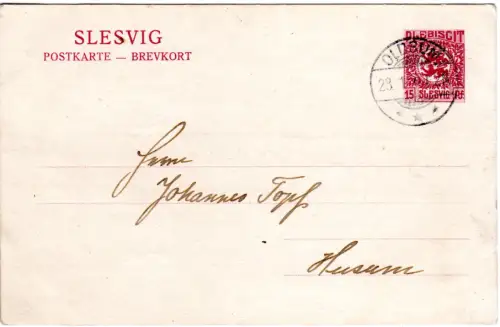 SLESVIG
POSTKARTE — BREVKORT
PLEBISCIT
15 SLESVIG PF.
Herrn
Johannes Topf
Husum